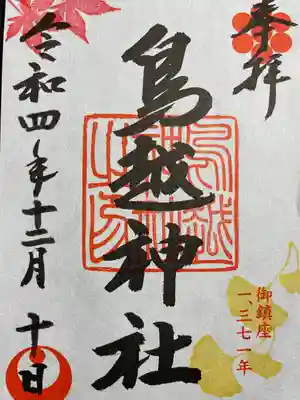 奉拝
鳥越神社
御鎮座
一、三七一年
令和四年十二月十日